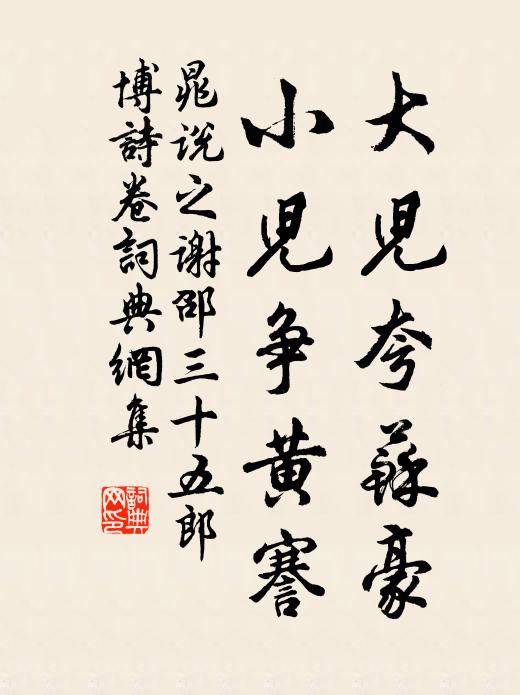 大兒夸蘇豪
小兒争黄謇
晁说之谢邵三十五郎
博詩卷詞典網集
詞典网印